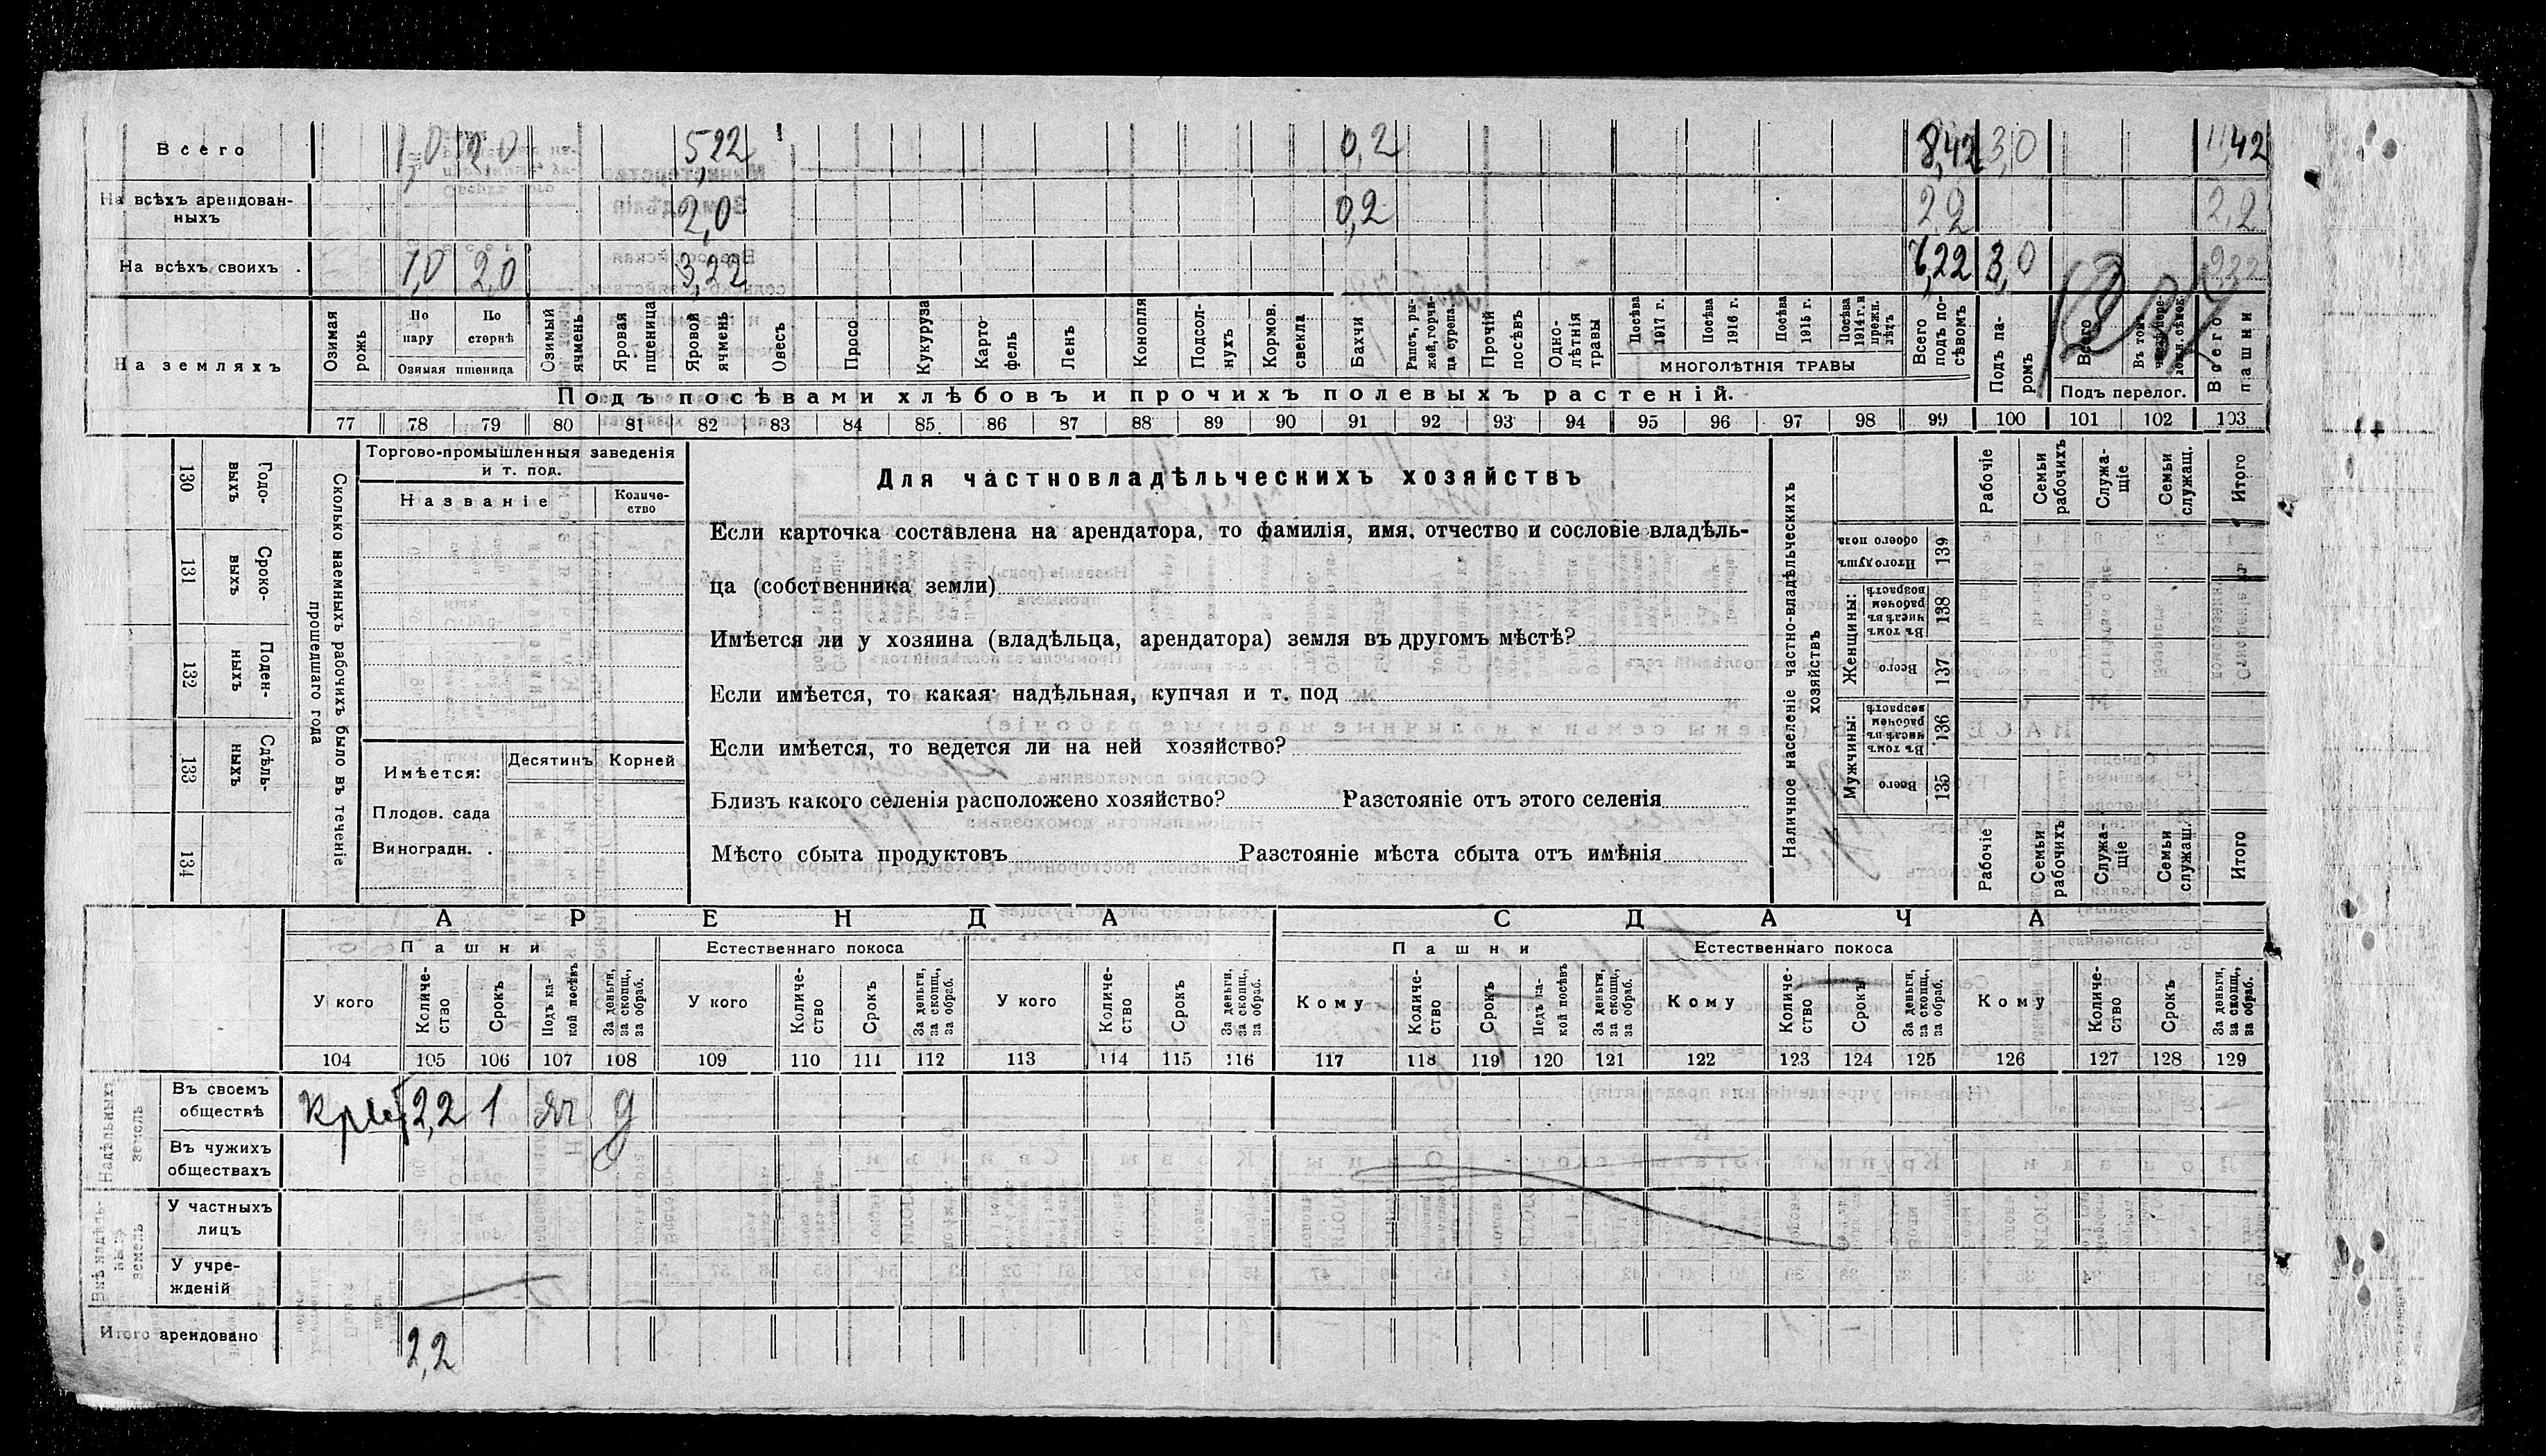 Всего 1,0 2,0 5,22 0,2 8,42 3,0 11,42
На всѣхъ арендован-
ныхъ 2,0 0,2 2,2 2,2
На всѣхъ своихъ . 1,0 2,0 3,22 6,22 3,0 9,22
На земляхъ
Озимая рожь
По пару
По стернѣ
Озимая пшеница
Озимый ячмень
Яровая пшеница
Яровой ячмень
Овесъ
Просо
Кукуруза
Карто-
фель
Ленъ
Конопля
Подсол-
нухъ
Кормов.
свекла
Бахчи
Рапсъ, ры-
жей, горчи-
ца сурепа.
Прочій посѣвъ
Одно-
лѣтнія травы
Посѣва 1917 г.
Посѣва 1916 г.
Посѣва 1915 г.
Посѣва 1914 г. и прежн. лѣтъ
МНОГОЛѢТНІЯ ТРАВЫ
Всего подъ по-
сѣвомъ
Подъ па-
ромъ
Всего
Подъ перелог.
Всего пашни
Подъ посѣвами хлѣбовъ и прочихъ полевыхъ растеній.
77 78 79 80 81 82 83 84 85 86 87 88 89 90 91 92 93 94 95 96 97 98 99 100 101 102 103
130 Годо-
выхъ
131 Сроко-
выхъ
132 Поден-
ныхъ
133 Сдѣль-
ныхъ
134
Сколько наемныхъ рабочихъ было въ теченіе
прошедшаго года
Торгово-промышленныя заведенія
и т. под.
Названіе
Количе-
ство
Имѣется:
Десятинъ Корней
Плодов. сада
Виноградн. .
Для частновладѣльческихъ хозяйствъ
Если карточка составлена на арендатора, то фамилія, имя, отчество и сословіе владѣль-
ца (собственника земли)
Имѣется ли у хозяина (владѣльца, арендатора) земля въ другомъ мѣстѣ?
Если имѣется, то какая: надѣльная, купчая и т. под
Если имѣется, то ведется ли на ней хозяйство?
Близъ какого селенія расположено хозяйство? Разстояніе отъ этого селенія
Мѣсто сбыта продуктовъ Разстояніе мѣста сбыта отъ имѣнія
Наличное населеніе частно-владѣльческихъ
хозяйствъ
Рабочіе
Семьи рабочихъ
Служа-
щіе
Семьи служащ.
Итого
Итого душъ обоего пола 139
Женщины:
Въ томъ числѣ въ рабочемъ возрастѣ 138
Всего 137
Мужчины:
Въ томъ числѣ въ рабочемъ возрастѣ 136
Всего 135
Рабочіе
Семьи рабочихъ
Служа-
щіе
Семьи служащ.
Итого
АРЕНДА СДАЧА
Пашни Естественнаго покоса Пашни Естественнаго покоса
У кого
Количе-
ство
Срокъ
Подъ ка-
кой посѣвъ
За деньги,
за скопщ.,
за обраб.
У кого
Количе-
ство
Срокъ
За деньги,
за скопщ.,
за обраб.
У кого
Количе-
ство
Срокъ
За деньги,
за скопщ.,
за обраб.
Кому
Количе-
ство
Срокъ
Подъ ка-
кой посѣвъ
За деньги,
за скопщ.,
за обраб.
Кому
Количе-
ство
Срокъ
За деньги,
за скопщ.,
за обраб.
Кому
Количе-
ство
Срокъ
За деньги,
за скопщ.,
за обраб.
104 105 106 107 108 109 110 111 112 113 114 115 116 117 118 119 120 121 122 123 124 125 126 127 128 129
Надѣльныхъ
земель
Въ своемъ
обществѣ 2,2 1 яч д
Въ чужихъ
обществахъ
Внѣ надѣль-
ныхъ
земель
У частныхъ
лицъ
У учре-
жденій
Итого арендовано 2,2